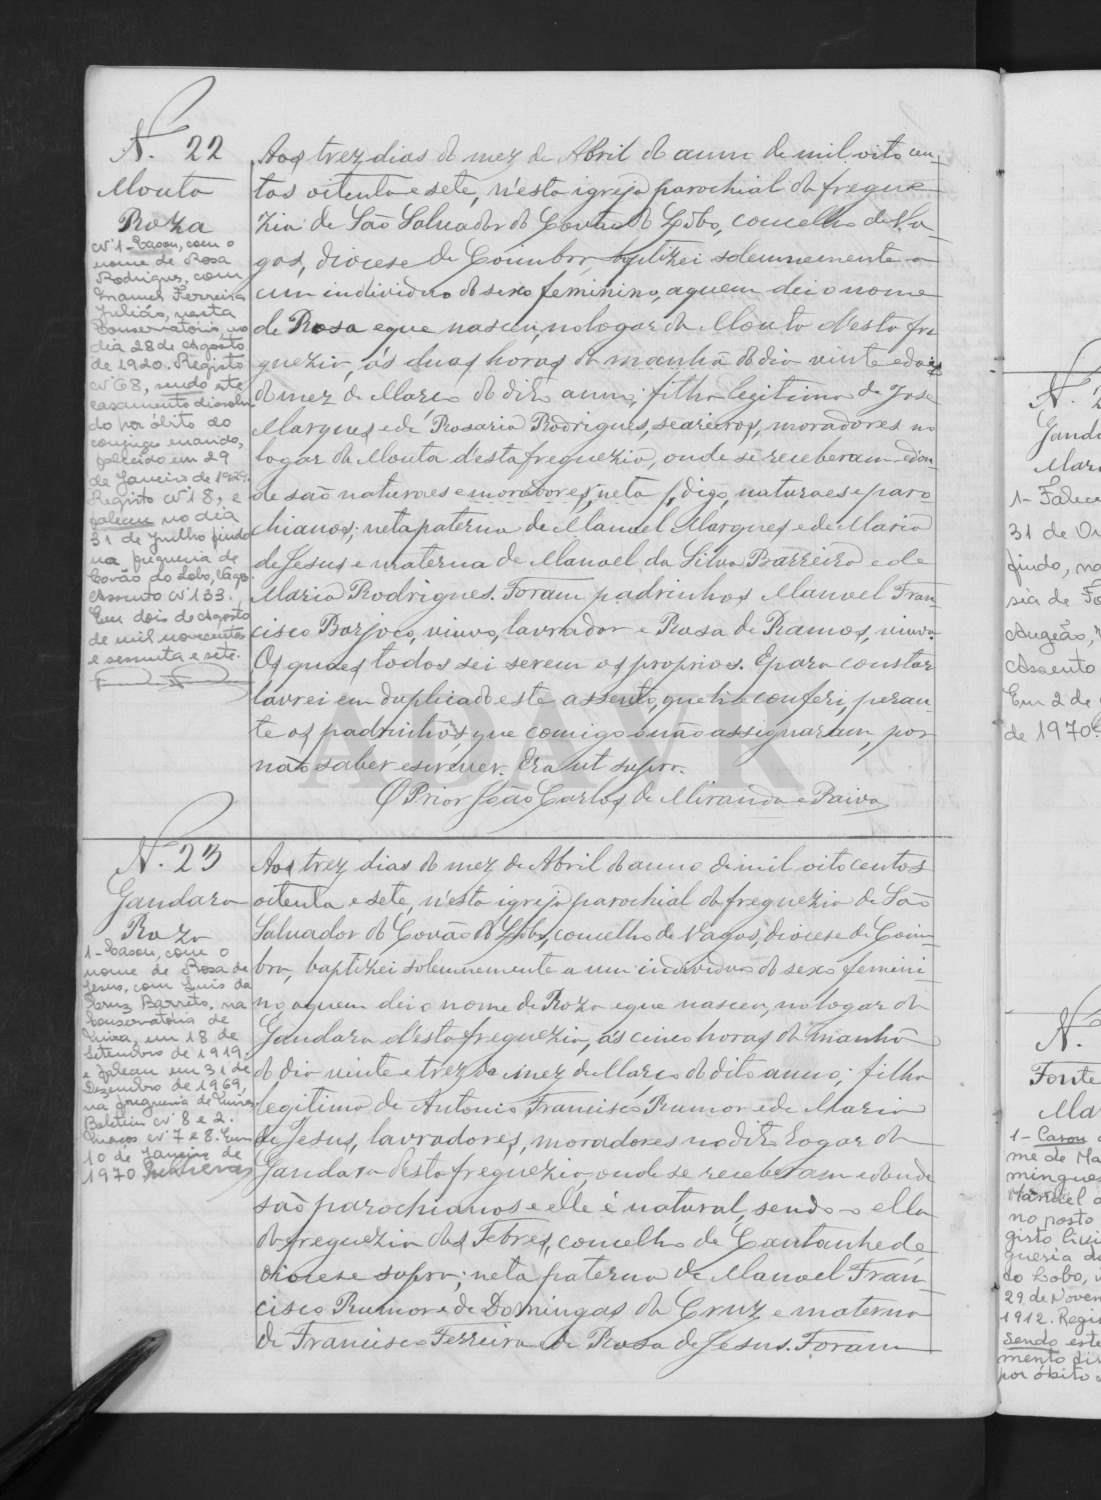 N.º 22
Mouta
Roza
Nº 1 - Casou, com o
nome de Rosa
Rodrigues, com
Manuel Ferreira
Julião, nesta
Conservatória, no
dia 28 de Agosto
de 1920. Registo
Nº 68, sendo este
casamento dissolvi-
do por óbito do
conjuge marido,
falecido em 29
de Janeiro de
Registo Nº 18, e
faleceu no dia
31 de Julho findo
na freguesia de
Covão do Lobo, Vagos.
Assento Nº 133.
Em dois de Agosto
de mil novecentos
e sessenta e sete.
Aos trez dias do mez de Abril do anno de mil oito cen-
tos oitenta e sete, n'esta igreja parochial da fregue-
zia de São Salvador do Covão do Lobo, concelho de Va-
gos, diocese de Coimbra, baptizei solemnemente a
um individuo do sexo feminino, a quem dei o nome
de Rosa e que nasceu, no logar da Mouta d'esta fre
guezia, ás duas horas da manhã do dia vinte e dois
do mez de Março do dito anno, filha legitima de José
Marques e de Rosaria Rodrigues, seareiros, moradores no
logar da Mouta d'esta freguezia, onde se receberam e don-
de são naturaes e moradores, neta p, digo, naturaes e paro
chianos; neta paterna de Manuel Marques e de Maria
de Jesus e materna de Manoel da Silva Barreira e de
Maria Rodrigues. Foram padrinhos Manuel Fran-
cisco Barjoco, viuvo, lavrador e Rosa de Ramos, viuva.
Os quaes todos sei serem os proprios. E para constar
lavrei em duplicado este assento, que li e conferi, peran-
te os padrinhos, que comigo não assignaram, por
não saber escrever. Era ut supra.
O Prior João Carlos de Miranda e Paiva
N.º 23
Gandara
Roza
1 - Casou, com o
nome de Rosa de
Jesus, com Luis da
Cruz Barreto, na
Conservatória de
Mira, em 18 de
Setembro de 1919.
e faleceu em 31 de
Dezembro de 1969,
na freguesia de Mira.
Boletim Nº 8 e 2.
Maços Nº 7 e 8. Em
10 de Janeiro de
1970
Aos trez dias do mez de Abril do anno de mil oitocentos
oitenta e sete, n'esta igreja parochial da freguezia de São
Salvador do Covão do Lobo, concelho de Vagos, diocese de Coim-
bra, baptizei solemnemente a um individuo do sexo femini
no a quem dei o nome de Roza e que nasceu, no logar da
Gandara d'esta freguezia, ás cinco horas da manhã
do dia vinte e trez do mez de Março do dito anno; filha
legitima de Antonio Francisco Rumor e de Maria
de Jesus, lavradores, moradores no dito logar da
Gandara d'esta freguezia, onde se receberam e donde
são parochianos e elle é natural, sendo-o ella
da freguezia das Febres, concelho de Cantanhede,
diocese supra; neta paterna de Manoel Fran-
cisco Rumor e de Domingas da Cruz e materna
de Francisco Ferreira e de Rosa de Jesus. Foram
ADAVR
Gand
Mari
1 - Falece
31 de
findo, na
sia de
Assento
Em 2 de
de 1970.
N.
Fonte
Ma
1 - Casou
me de Ma
mingues
Manuel
no posto
gisto Civi
guesia da
do Lobo,
29 de Novem
1912. Regi
sendo este
mento dis
por óbito